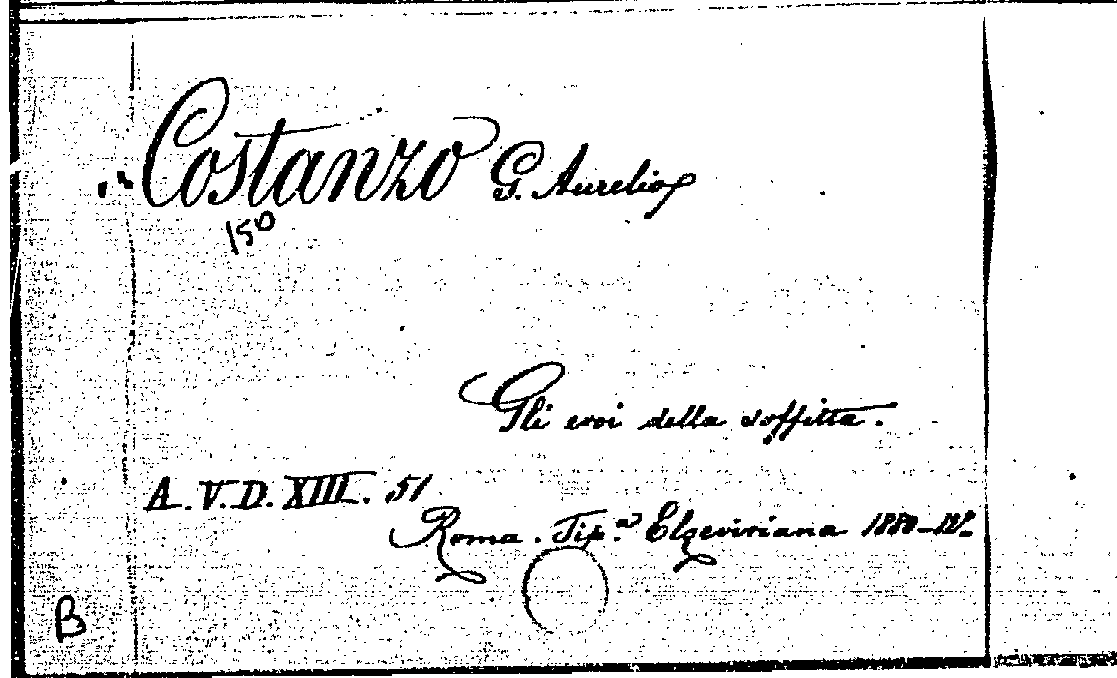 Costanzo G. Aurelio
150
Gli eroi della soffitta.
A. V. D. XIII. 51
Roma. Tip.ª Elzeviriana 1880-12º
B